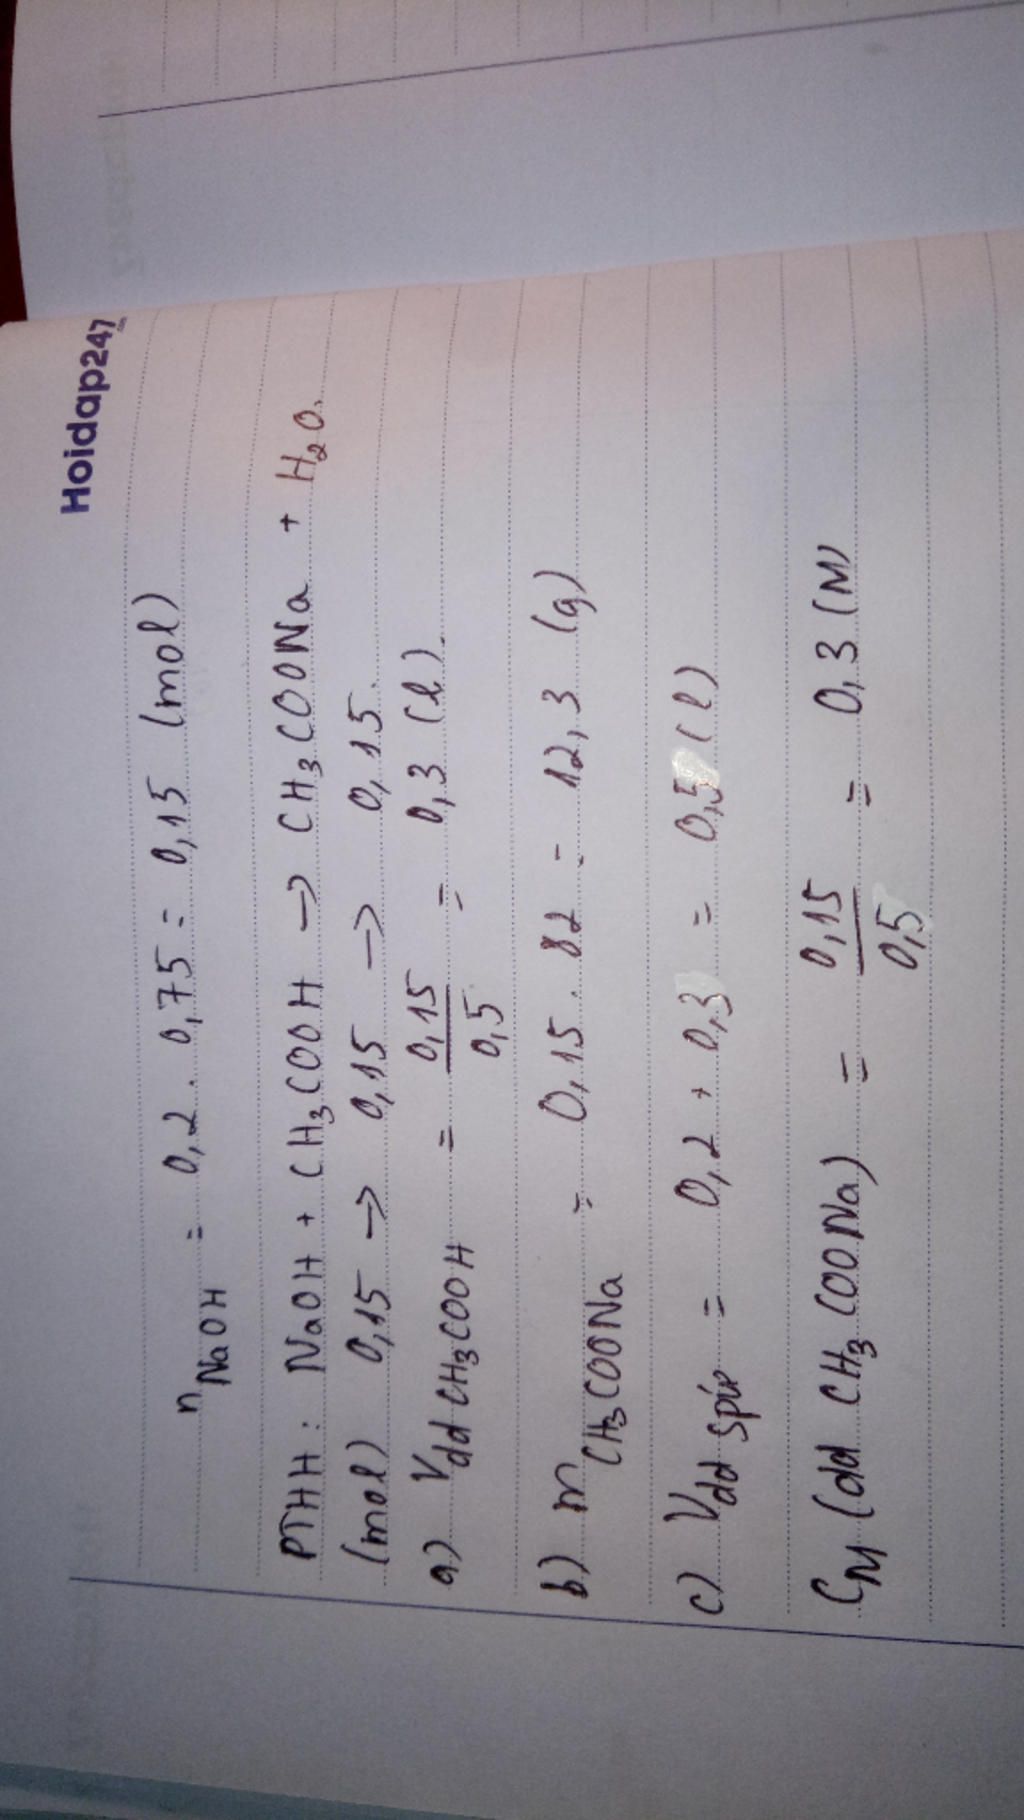 Hoidap247
.com
n NaOH = 0,2 . 0,75 = 0,15 (mol)
PTHH : NaOH + CH3COOH → CH3COONa + H2O.
(mol) 0,15 → 0,15 → 0,15.
a) Vdd CH3COOH = 0,15/0,5 = 0,3 (l).
b) m CH3COONa = 0,15 . 82 = 12,3 (g)
c) Vdd spư = 0,2 + 0,3 = 0,5 (l)
CM (dd CH3COONa) = 0,15/0,5 = 0,3 (M)